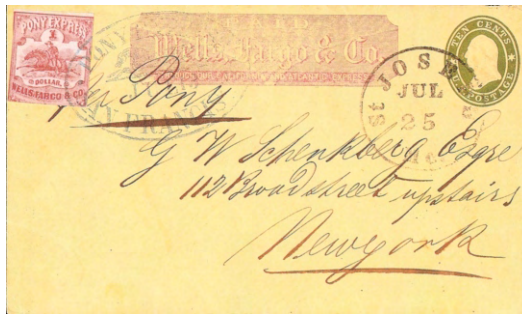 PONY EXPRESS
1
DOLLAR.
WELLS, FARGO & CO.
PAID
Wells, Fargo & Co.
TEN CENTS
POSTAGE
PONY
FRANCIS
St JOSEPH
JUL
25
per Pony
G W Schenkberg Esqre
112 Broadstreet upstairs
Newyork